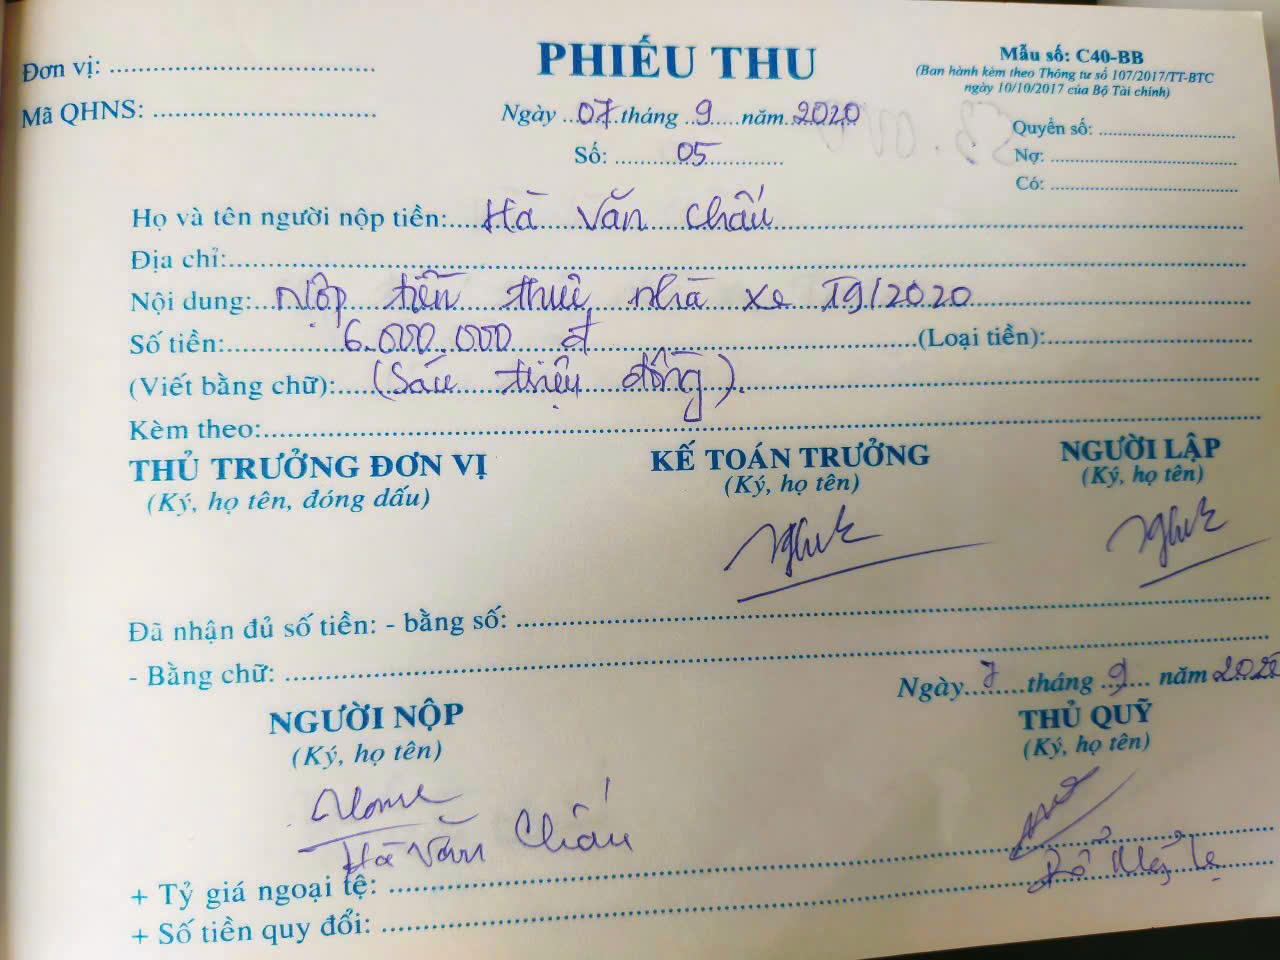 Đơn vị: ........................
PHIẾU THU
Mẫu số: C40-BB
(Ban hành kèm theo Thông tư số 107/2017/TT-BTC
ngày 10/10/2017 của Bộ Tài chính)
Mã QHNS: ........................
Ngày 07 tháng 9 năm 2020
Số: 05
Quyển số: ........................
Nợ: ........................
Có: ........................
Họ và tên người nộp tiền: Hà Văn Chấu
Địa chỉ: ........................
Nội dung: Nộp tiền thuê nhà xe T9/2020
Số tiền: 6.000.000 đ (Loại tiền): ........................
(Viết bằng chữ): (Sáu triệu đồng).
Kèm theo: ........................
THỦ TRƯỞNG ĐƠN VỊ
(Ký, họ tên, đóng dấu)
KẾ TOÁN TRƯỞNG
(Ký, họ tên)
NGƯỜI LẬP
(Ký, họ tên)
Đã nhận đủ số tiền: - bằng số: ........................
- Bằng chữ: ........................
Ngày 7 tháng 9 năm 2020
NGƯỜI NỘP
(Ký, họ tên)
THỦ QUỸ
(Ký, họ tên)
Hà Văn Chấu
+ Tỷ giá ngoại tệ: ........................
+ Số tiền quy đổi: ........................